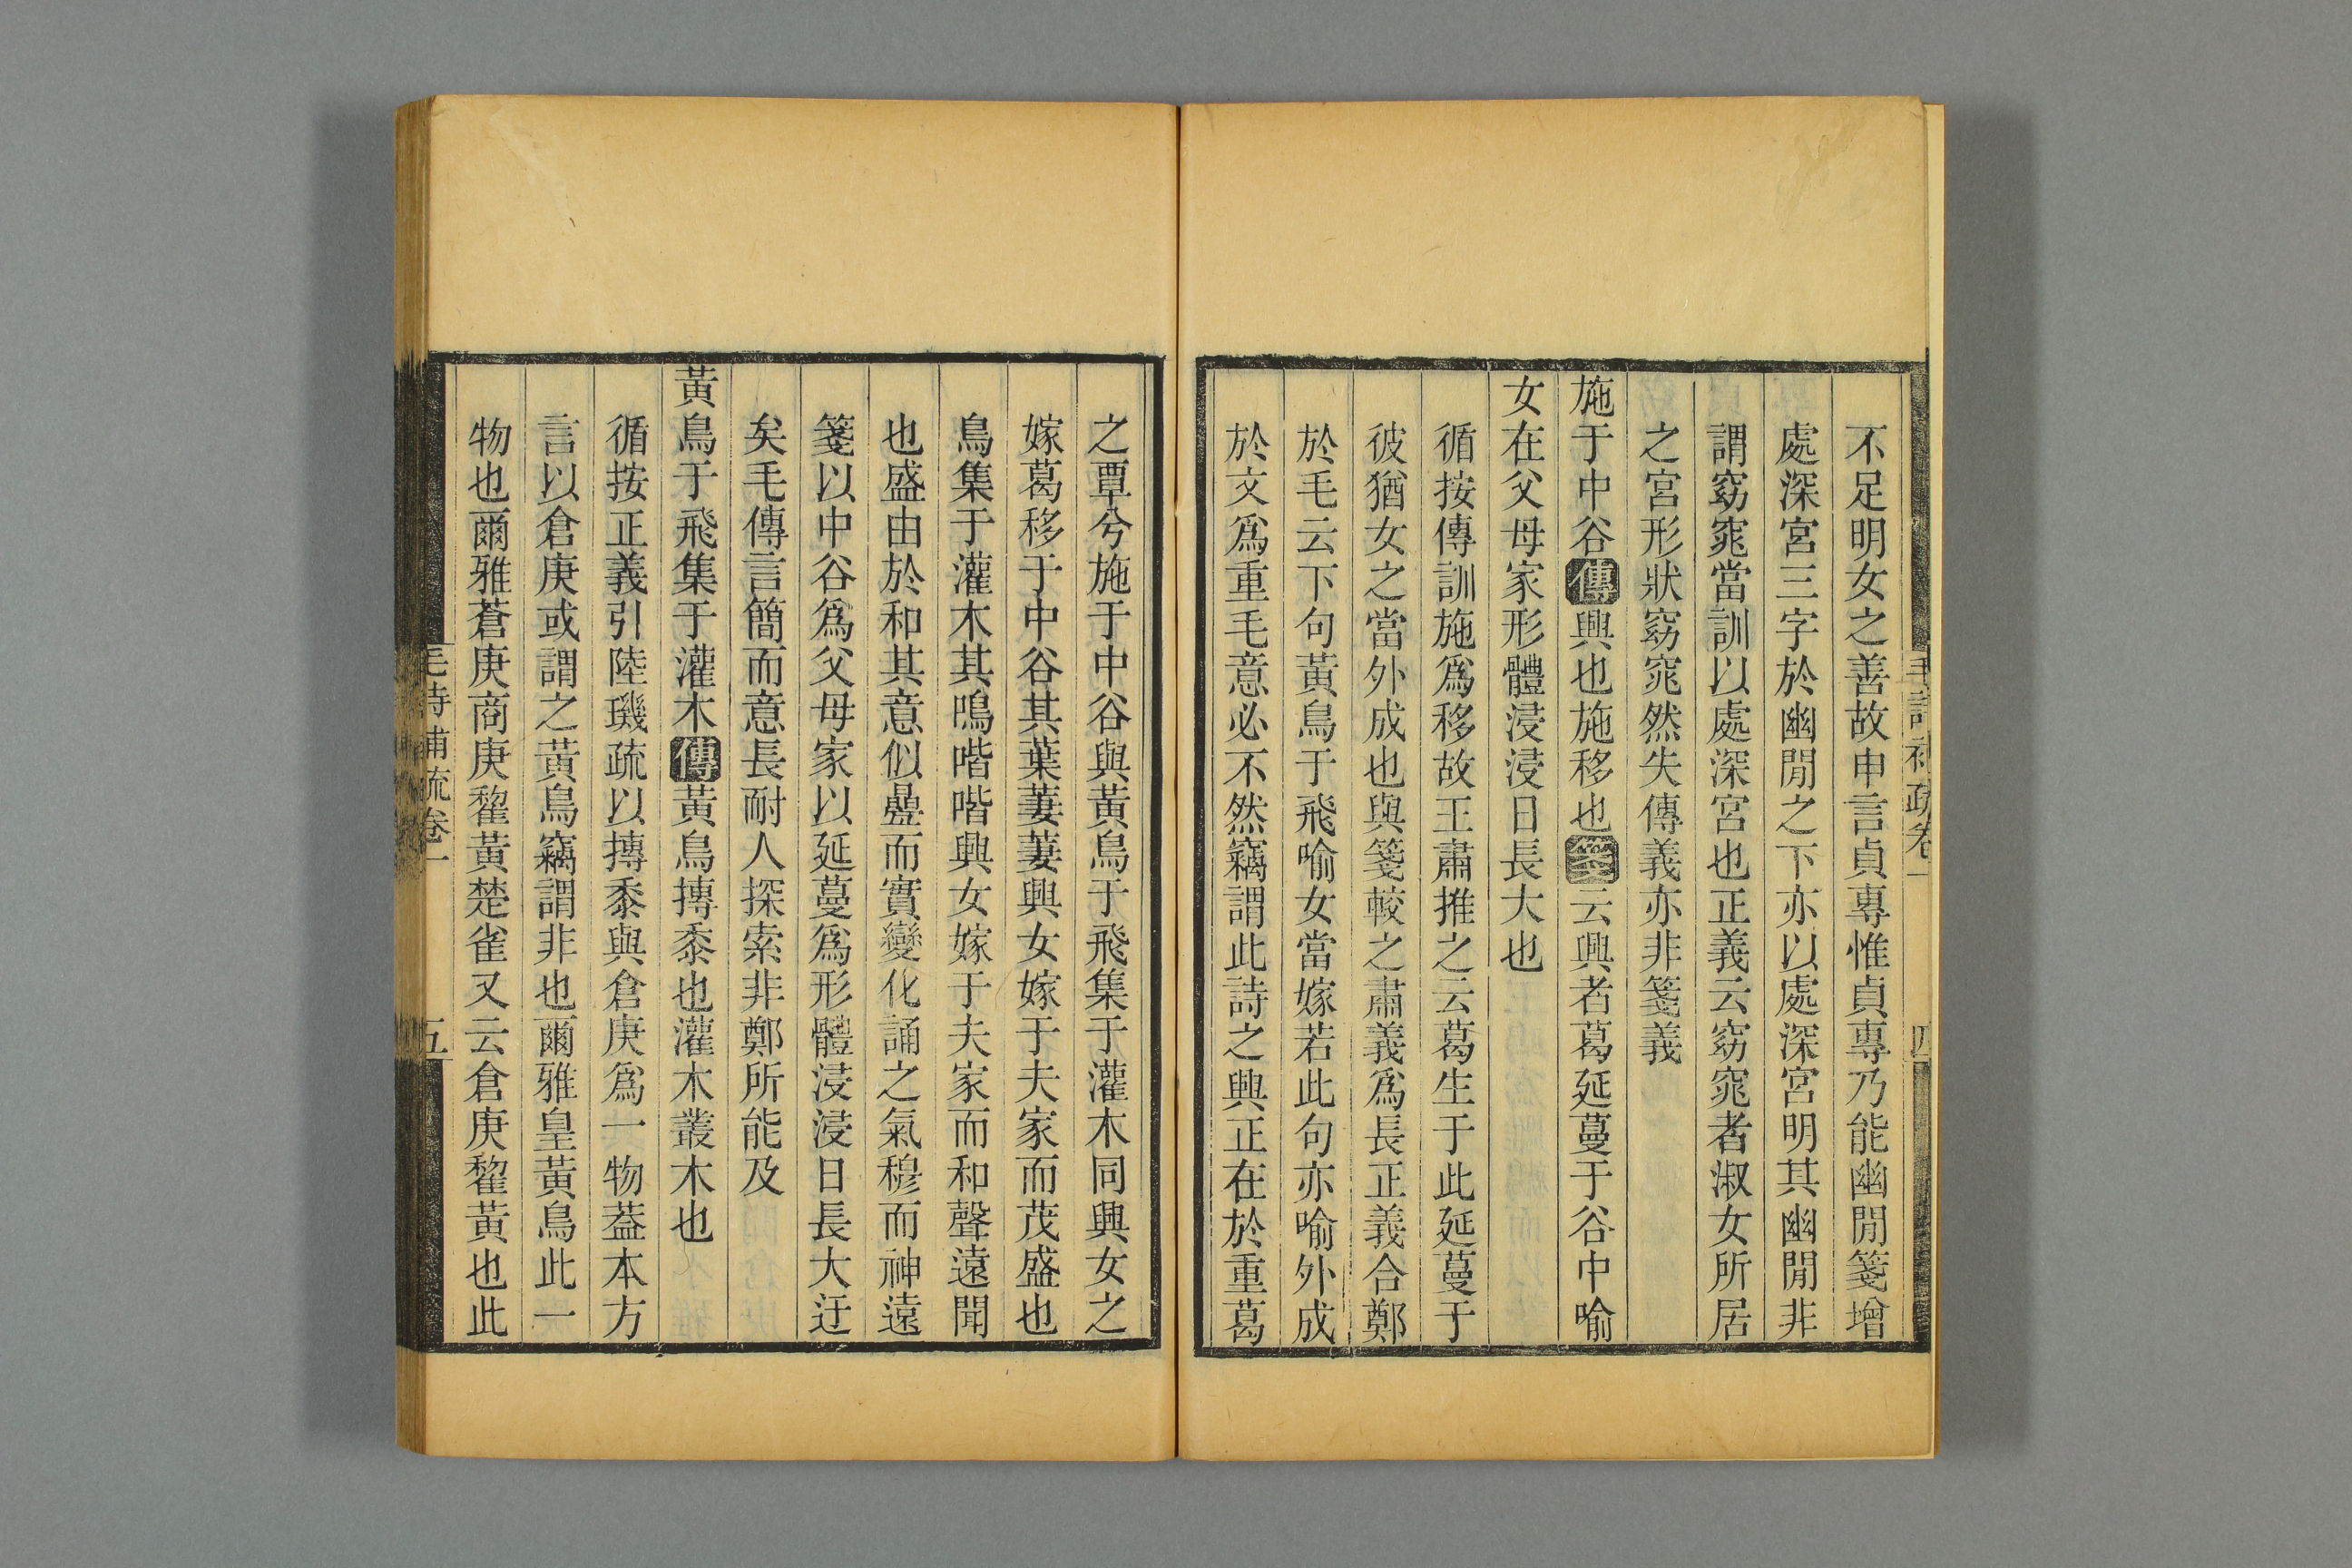 毛詩補疏卷一
四
不足明女之善故申言貞專惟貞專乃能幽閒箋增
處深宮三字於幽閒之下亦以處深宮明其幽閒非
謂窈窕當訓以處深宮也正義云窈窕者淑女所居
之宮形狀窈窕然失傳義亦非箋義
施于中谷傳興也施移也箋云興者葛延蔓于谷中喻
女在父母家形體浸浸日長大也
循按傳訓施爲移故王肅推之云葛生于此延蔓于
彼猶女之當外成也與箋較之肅義爲長正義合鄭
於毛云下句黃鳥于飛喻女當嫁若此句亦喻外成
於文爲重毛意必不然竊謂此詩之興正在於重葛
之覃兮施于中谷與黃鳥于飛集于灌木同興女之
嫁葛移于中谷其葉萋萋興女嫁于夫家而茂盛也
鳥集于灌木其鳴喈喈興女嫁于夫家而和聲遠聞
也盛由於和其意似疊而實變化誦之氣穆而神遠
箋以中谷爲父母家以延蔓爲形體浸浸日長大迂
矣毛傳言簡而意長耐人探索非鄭所能及
黃鳥于飛集于灌木傳黃鳥摶黍也灌木叢木也
循按正義引陸璣疏以摶黍與倉庚爲一物葢本方
言以倉庚或謂之黃鳥竊謂非也爾雅皇黃鳥此一
物也爾雅蒼庚商庚鵹黃楚雀又云倉庚鵹黃也此
毛詩補疏卷一
五